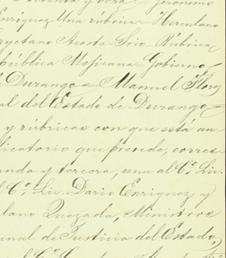 y otra Geronimo
Enriquez Una rubrica Herculano
Cayetano Acosta Srio Rubrica
pública Mejicana Gobierno
Durango = Manuel Flor
al del Estado de Durango =
y rúbricas con que está au
licatorio que precede, corres
unda y tercera, una al C. Lic.
l C. Lic. Dario Enriquez y
lano Quezada, Ministros
unal de Justicia del Estado,